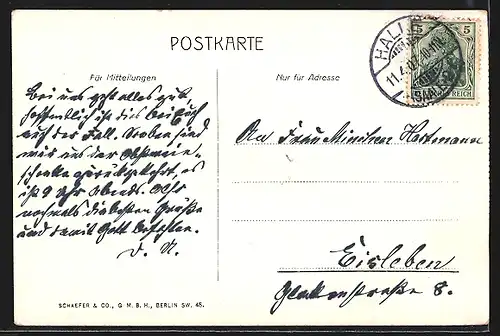 POSTKARTE
Für Mitteilungen
Nur für Adresse
HALLE
11.4.07
(SAALE)
5 5
REICH
Bei uns geht alles gut
hoffentlich ist dies bei Euch
auch der Fall. Soeben sind
wir aus der Obstwein-
schenke zurückgekehrt, es
ist 9 Uhr Abends.
nochmals die besten Grüße
und damit Gott befohlen.
An Frau Minchen Hartmann
Eisleben
Glockenstraße 8.
SCHAEFER & CO., G. M. B. H., BERLIN SW. 48.